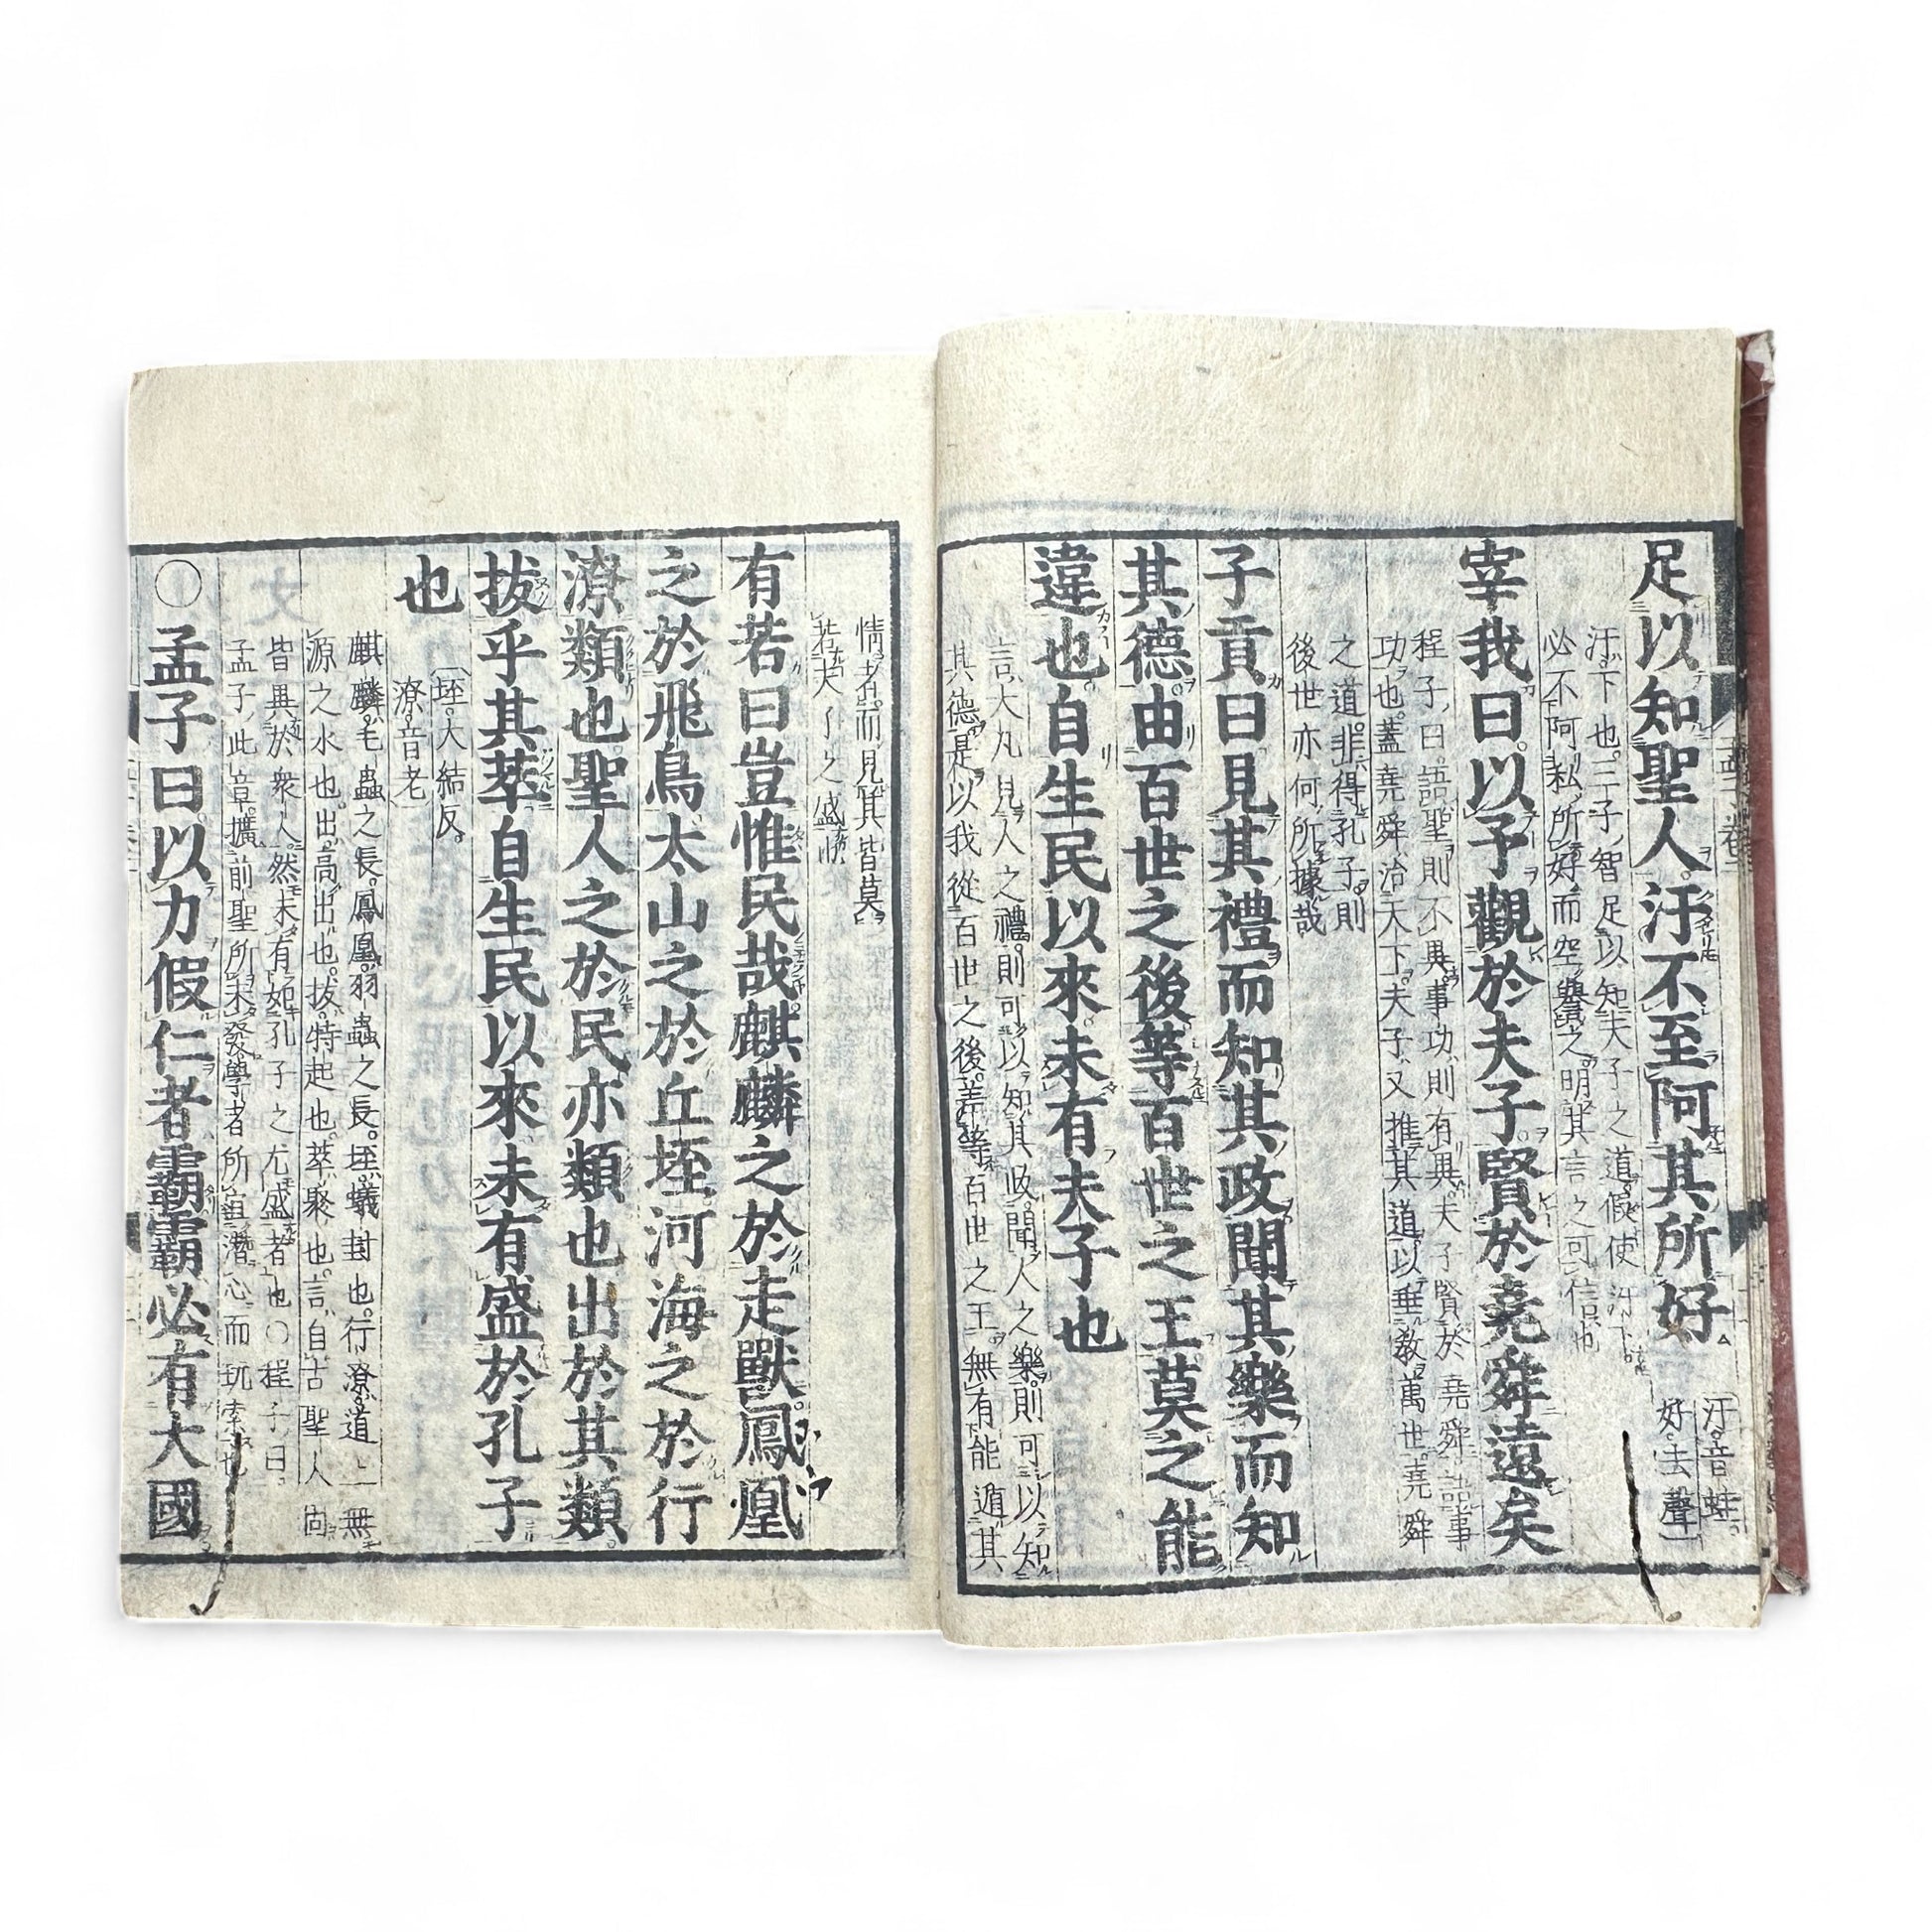 足以知聖人汙不至阿其所好
汙音蛙
好去聲
汙下也三子智足以知夫子之道假使汙下
必不阿私所好而空譽之明其言之可信也
宰我曰以予觀於夫子賢於堯舜遠矣
程子曰語聖則不異事功則有異夫子賢於堯舜語事
功也蓋堯舜治天下夫子又推其道以垂教萬世堯舜
之道非得孔子則
後世亦何所據哉
子貢曰見其禮而知其政聞其樂而知
其德由百世之後等百世之王莫之能
違也自生民以來未有夫子也
言大凡見人之禮則可以知其政聞人之樂則可以知
其德是以我從百世之後差等百世之王無有能遁其
情者而見其皆莫
若夫子之盛也
有若曰豈惟民哉麒麟之於走獸鳳凰
之於飛鳥太山之於丘垤河海之於行
潦類也聖人之於民亦類也出於其類
拔乎其萃自生民以來未有盛於孔子
也
垤大結反
潦音老
麒麟毛蟲之長鳳凰羽蟲之長垤蟻封也行潦道上無
源之水也出高出也拔特起也萃聚也言自古聖人固
皆異於衆人然未有如孔子之尤盛者也○程子曰
孟子此章擴前聖所未發學者所宜潛心而玩索也
○孟子曰以力假仁者霸霸必有大國